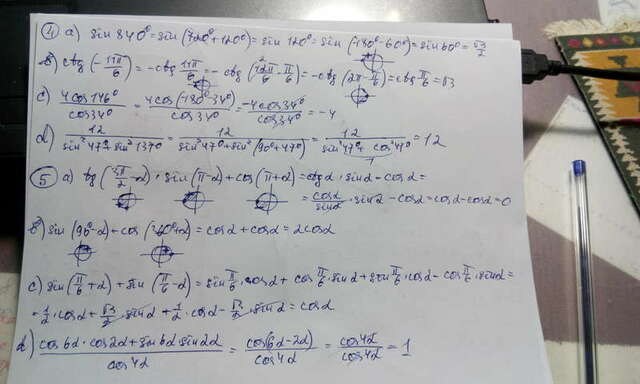 ④ a) sin 840° = sin (720° + 120°) = sin 120° = sin (180° - 60°) = sin 60° = √3/2
b) ctg (-11π/6) = -ctg 11π/6 = -ctg (12π/6 - π/6) = -ctg (2π - π/6) = ctg π/6 = √3
c) 4cos146°/cos34° = 4cos(180°-34°)/cos34° = -4cos34°/cos34° = -4
d) 12/(sin²47° + sin²137°) = 12/(sin²47° + sin²(90°+47°)) = 12/(sin²47° + cos²47°) = 12
1
⑤ a) tg (3π/2 - α) · sin (π - α) + cos (π + α) = ctg α · sin α - cos α =
= cosα/sinα · sin α - cos α = cos α - cos α = 0
b) sin (90° - α) + cos (360° + α) = cos α + cos α = 2cos α
c) sin (π/6 + α) + sin (π/6 - α) = sin π/6 · cos α + cos π/6 · sin α + sin π/6 · cos α - cos π/6 · sin α =
= 1/2 · cos α + √3/2 · sin α + 1/2 · cos α - √3/2 · sin α = cos α
d) (cos 6α · cos 2α + sin 6α · sin 2α)/cos 4α = cos(6α - 2α)/cos 4α = cos 4α/cos 4α = 1